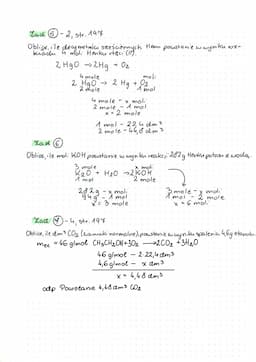 Zad. 5 - 2, str. 197
Oblicz, ile decymetrów sześciennych tlenu powstanie w wyniku
rozkładu 4 mol. tlenku rtęci (II).
2 HgO → 2Hg + O₂
4 mole x moli
2 HgO → 2 Hg + O₂
2 mole 1 mol
4 mole - x moli
2 mole - 1 mol
x = 2 mole
1 mol - 22,4 dm³
2 mole - 44,8 dm³
Zad. 6
Oblicz, ile moli KOH powstanie w wyniku reakcji 282g tlenku potasu z wodą.
3 mole x moli
K₂O + H₂O → 2KOH
1 mol 2 mole
282g - x moli
94g - 1 mol
x = 3 mole
3 mole - x moli
1 mol - 2 mole
x = 6 moli
Zad. 7 - 4, str. 197
Oblicz, ile dm³ CO₂ (warunki normalne) powstanie w wyniku spalenia 4,6g etanolu.
= 46 g/mol CH₃CH₂OH + 3O₂ → 2CO₂ + 3H₂O
46 g/mol - 2·22,4 dm³
4,6 g/mol - x dm³
x = 4,48 dm³
odp Powstanie 4,48 dm³ CO₂